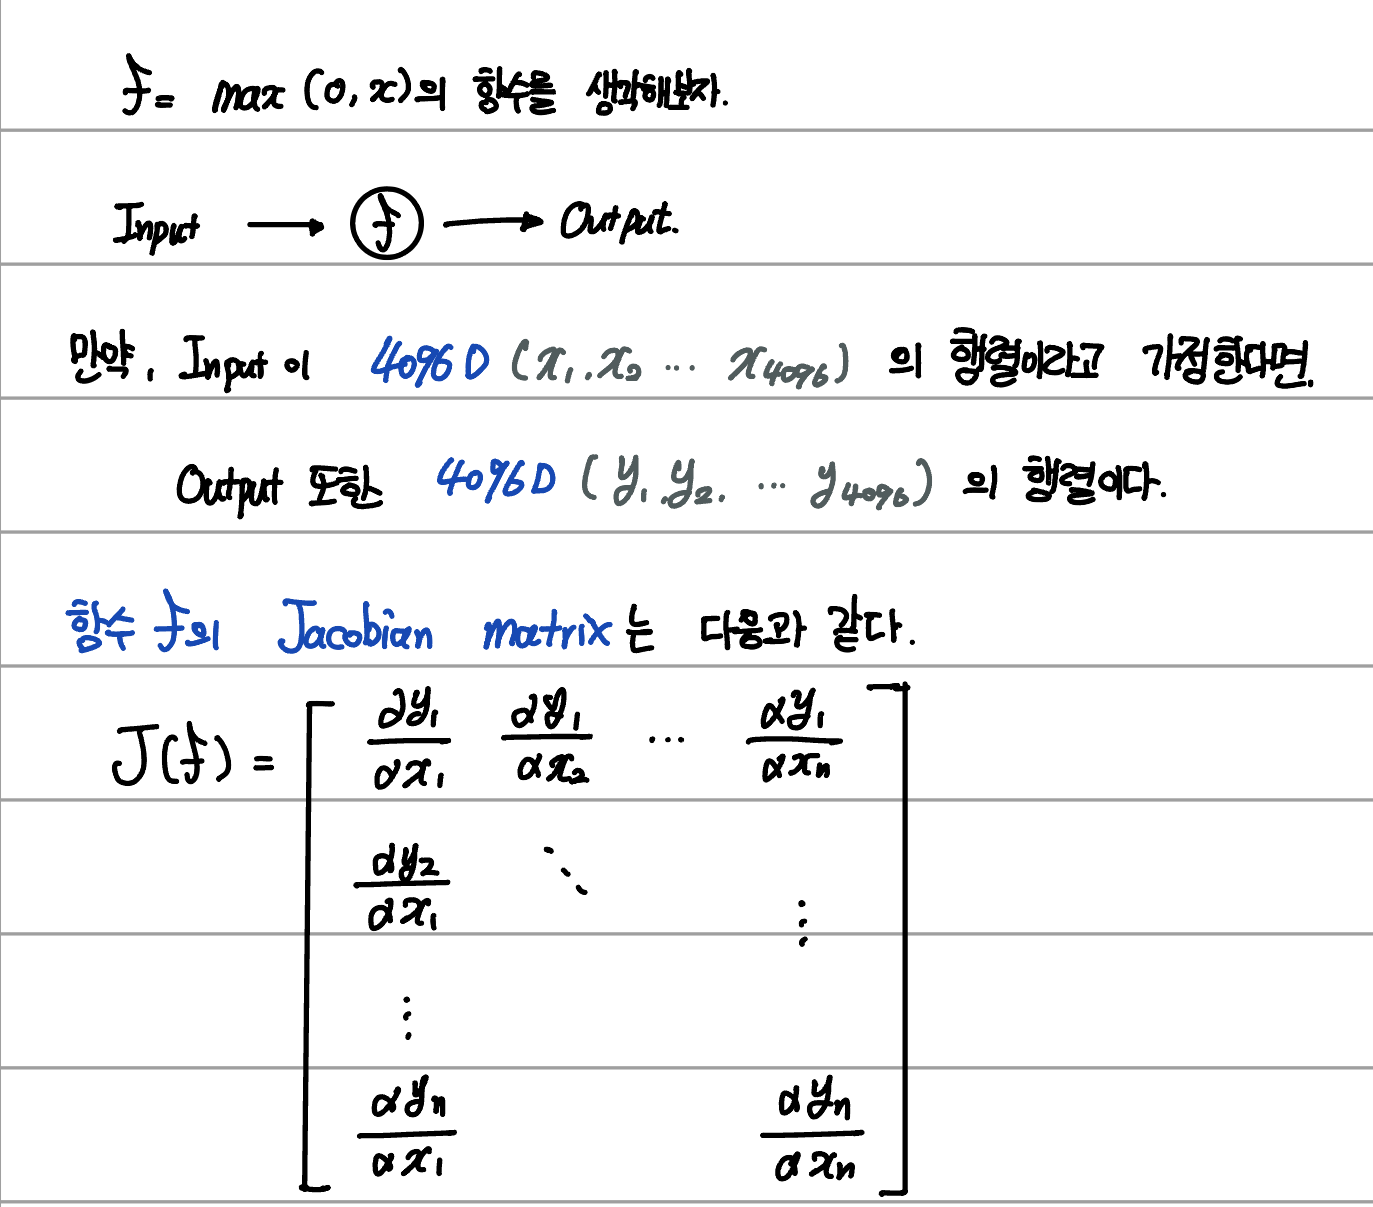 f = max (0, x)의 함수를 생각해보자.
Input → f → Output.
만약, Input이 4096D (x₁, x₂ ... x₄₀₉₆) 의 행렬이라고 가정한다면.
Output 또한 4096D (y₁, y₂, ... y₄₀₉₆) 의 행렬이다.
함수 f의 Jacobian matrix는 다음과 같다.
J(f) = [ ∂y₁/∂x₁ ∂y₁/∂x₂ ... ∂y₁/∂xₙ
∂y₂/∂x₁ ⋱ ⋮
⋮
∂yₙ/∂x₁ ∂yₙ/∂xₙ ]